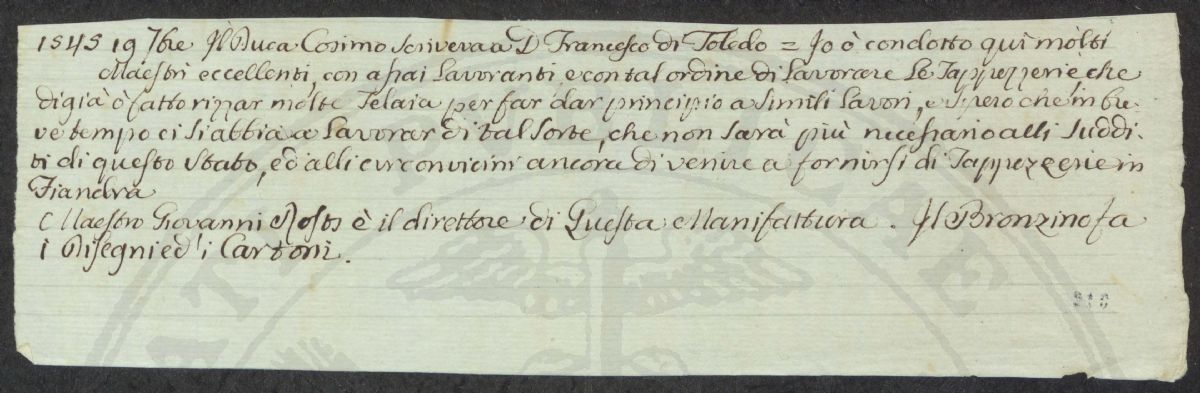 1545 19 7bre Il Duca Cosimo scriveva a D Francesco di Toledo = Io ò condotto quì mólti
Maestri eccellenti, con assai Lavoranti e con tal ordine di Lavorare Le Tappezzerie che
di già ò fatto rizzar mólte Telaia per far dar principio a simili Lavori, e spero che in bre
ve tempo ci si abbia a Lavorar di tal sorte, che non sarà più necessario alli suddi-
ti di questo stato, ed alli circonvicini ancora di venire a fornirsi di Tappezzerie in
Fiandra
Maestro Giovanni Rosts è il direttore di Questa Manifattura. Il Bronzino fa
i Disegni ed i Cartoni.
310